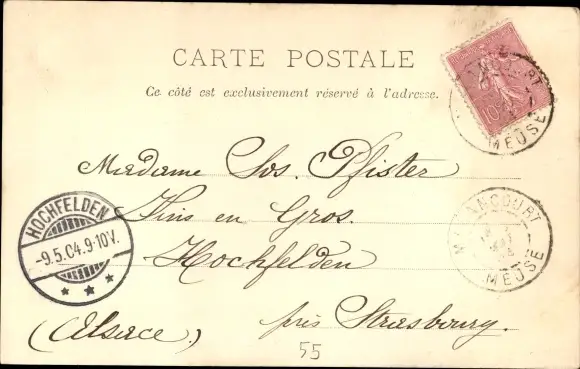 CARTE POSTALE
Ce côté est exclusivement réservé à l'adresse.
10
MEUSE
Madame Jos. Pfister
Vins en Gros.
Hochfelden
(Alsace.) près Strasbourg.
HOCHFELDEN
-9.5.04.9-10V.
MEUSE
55